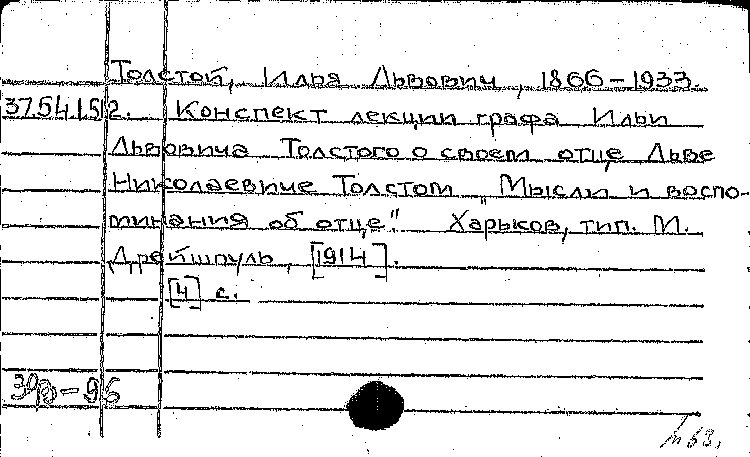 Толстой, Илья Львович, 1866-1933.
37.54.15.2. Конспект лекции графа Ильи
Львовича Толстого о своем отце Льве
Николаевиче Толстом „Мысли и воспо-
минания об отце". Харьков, тип. М.
Дрейшпуль, [1914].
[4] с.